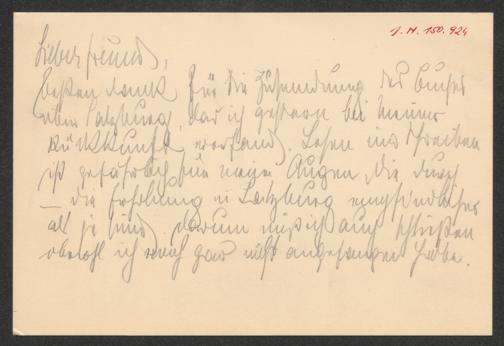 J. N. 150.924
Lieber Freund,
besten Dank für die Zusendung des Buches
über Salzburg, das ich gestern bei meiner
Rückkunft vorfand. Lesen und Schreiben
ist gefährlich für meine Augen, die durch
– die Erholung in Salzburg empfindlicher
als je sind. Darum muß ich auch schließen
obwohl ich noch gar nicht angefangen habe.